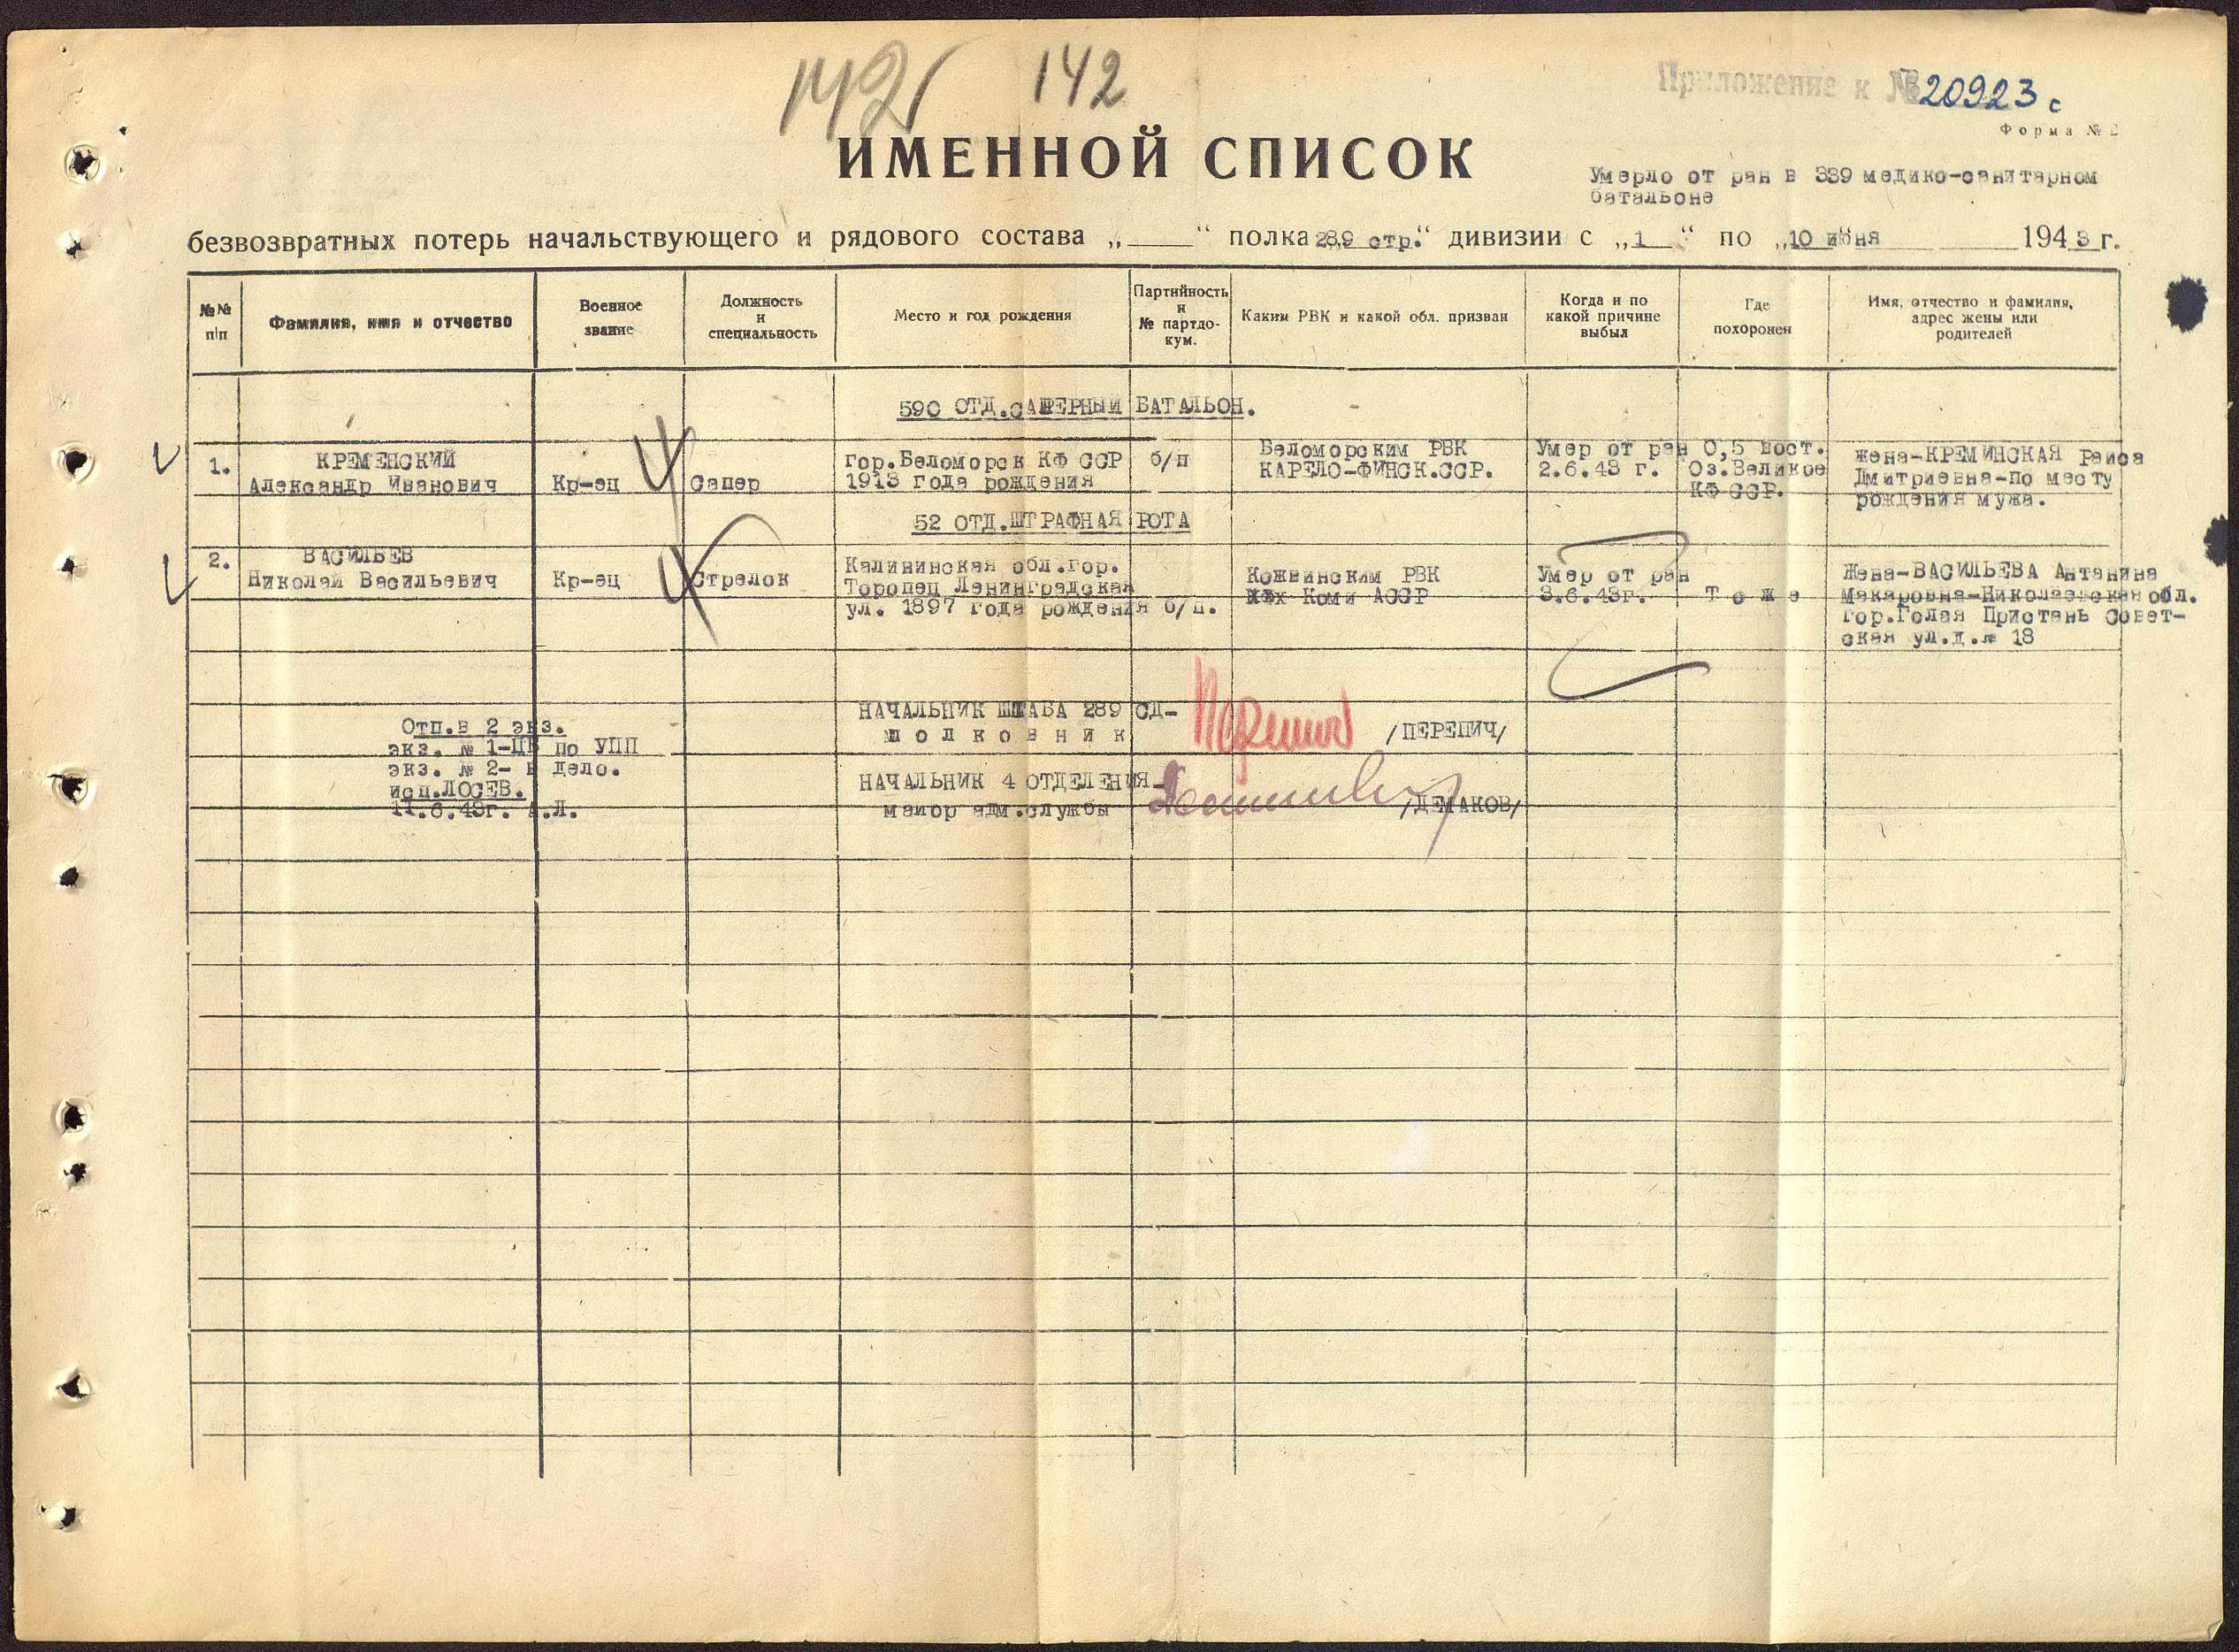 142 142
Приложение к № 20923 с
Форма № 2
ИМЕННОЙ СПИСОК
Умерло от ран в 339 медико-санитарном
батальоне
безвозвратных потерь начальствующего и рядового состава „ “ полка 289 стр. дивизии с „1“ по „10 июня 1943 г.
№№ п|п
Фамилия, имя и отчество
Военное звание
Должность и специальность
Место и год рождения
Партийность и № партдокум.
Каким РВК и какой обл. призван
Когда и по какой причине выбыл
Где похоронен
Имя, отчество и фамилия, адрес жены или родителей
590 ОТД.САПЕРНЫЙ БАТАЛЬОН.
1.
КРЕМЕНСКИЙ
Александр Иванович
Кр-ец
Сапер
гор.Беломорск КФ ССР
1913 года рождения
б/п
Беломорским РВК
КАРЕЛО-ФИНСК.ССР.
Умер от ран
2.6.43 г.
0,5 вост.
Оз.Великое
КФ ССР.
Жена-КРЕМИНСКАЯ Раиса
Дмитриевна-по месту
рождения мужа.
52 ОТД.ШТРАФНАЯ РОТА
2.
ВАСИЛЬЕВ
Николай Васильевич
Кр-ец
Стрелок
Калининская обл.гор.
Торопец Ленинградская
ул. 1897 года рождения
б/п.
Кожвинским РВК
Коми АССР
Умер от ран
3.6.43г.
То же
Жена-ВАСИЛЬЕВА Антанина
Макаровна-Николаевская обл.
гор.Голая Пристань Совет-
ская ул.д.№ 18
Отп.в 2 экз.
экз. № 1-ЦБ по УПП
экз. № 2- в дело.
исп.ЛОСЕВ.
11.6.43г. А.Л.
НАЧАЛЬНИК ШТАБА 289 СД-
полковник
/ПЕРЕПИЧ/
НАЧАЛЬНИК 4 ОТДЕЛЕНИЯ-
майор адм.службы
/ДЕМАКОВ/